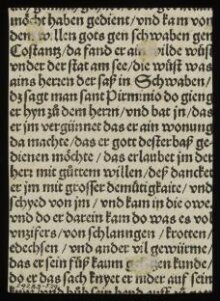 möcht haben gedient/vnd kam von
dem willen gots gen schwaben gen
Costantz/da fand er ain wilde wüst
vnder der stat am see/die wüst was
ains herren der saß in Schwaben/
dz sagt man sant Pirminio do gieng
er hyn zů dem herrn/vnd bat jn/das
er jm vergünnet das er ain wonung
da machte/das er got desterbaß ge
dienen möchte/das erlaubet jm der
herr mit gůttem willen/deß dancket
er jm mit grosser demůtigkaite/vnd
schyed von jm/vnd kam in die owe
vnd do er darein kam do was es vol
vnzifers/von schlanngen/krotten/
edechsen/vnd ander vil gewürme/
das er sein fůß kaum gesetzen kunde/
do er das sach knyet er nider auf sein